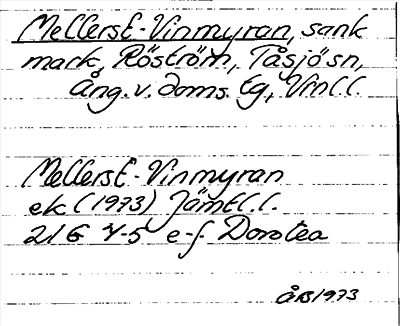 Mellerst-Vinmyran, sank
mark, Röström, Tåsjö sn,
Ång. v. doms. tg, Vnl.l.
Mellerst-Vinmyran
ek (1973) Jämtl.l.
21G 4-5 e-f Dorotea
ÅB 1973